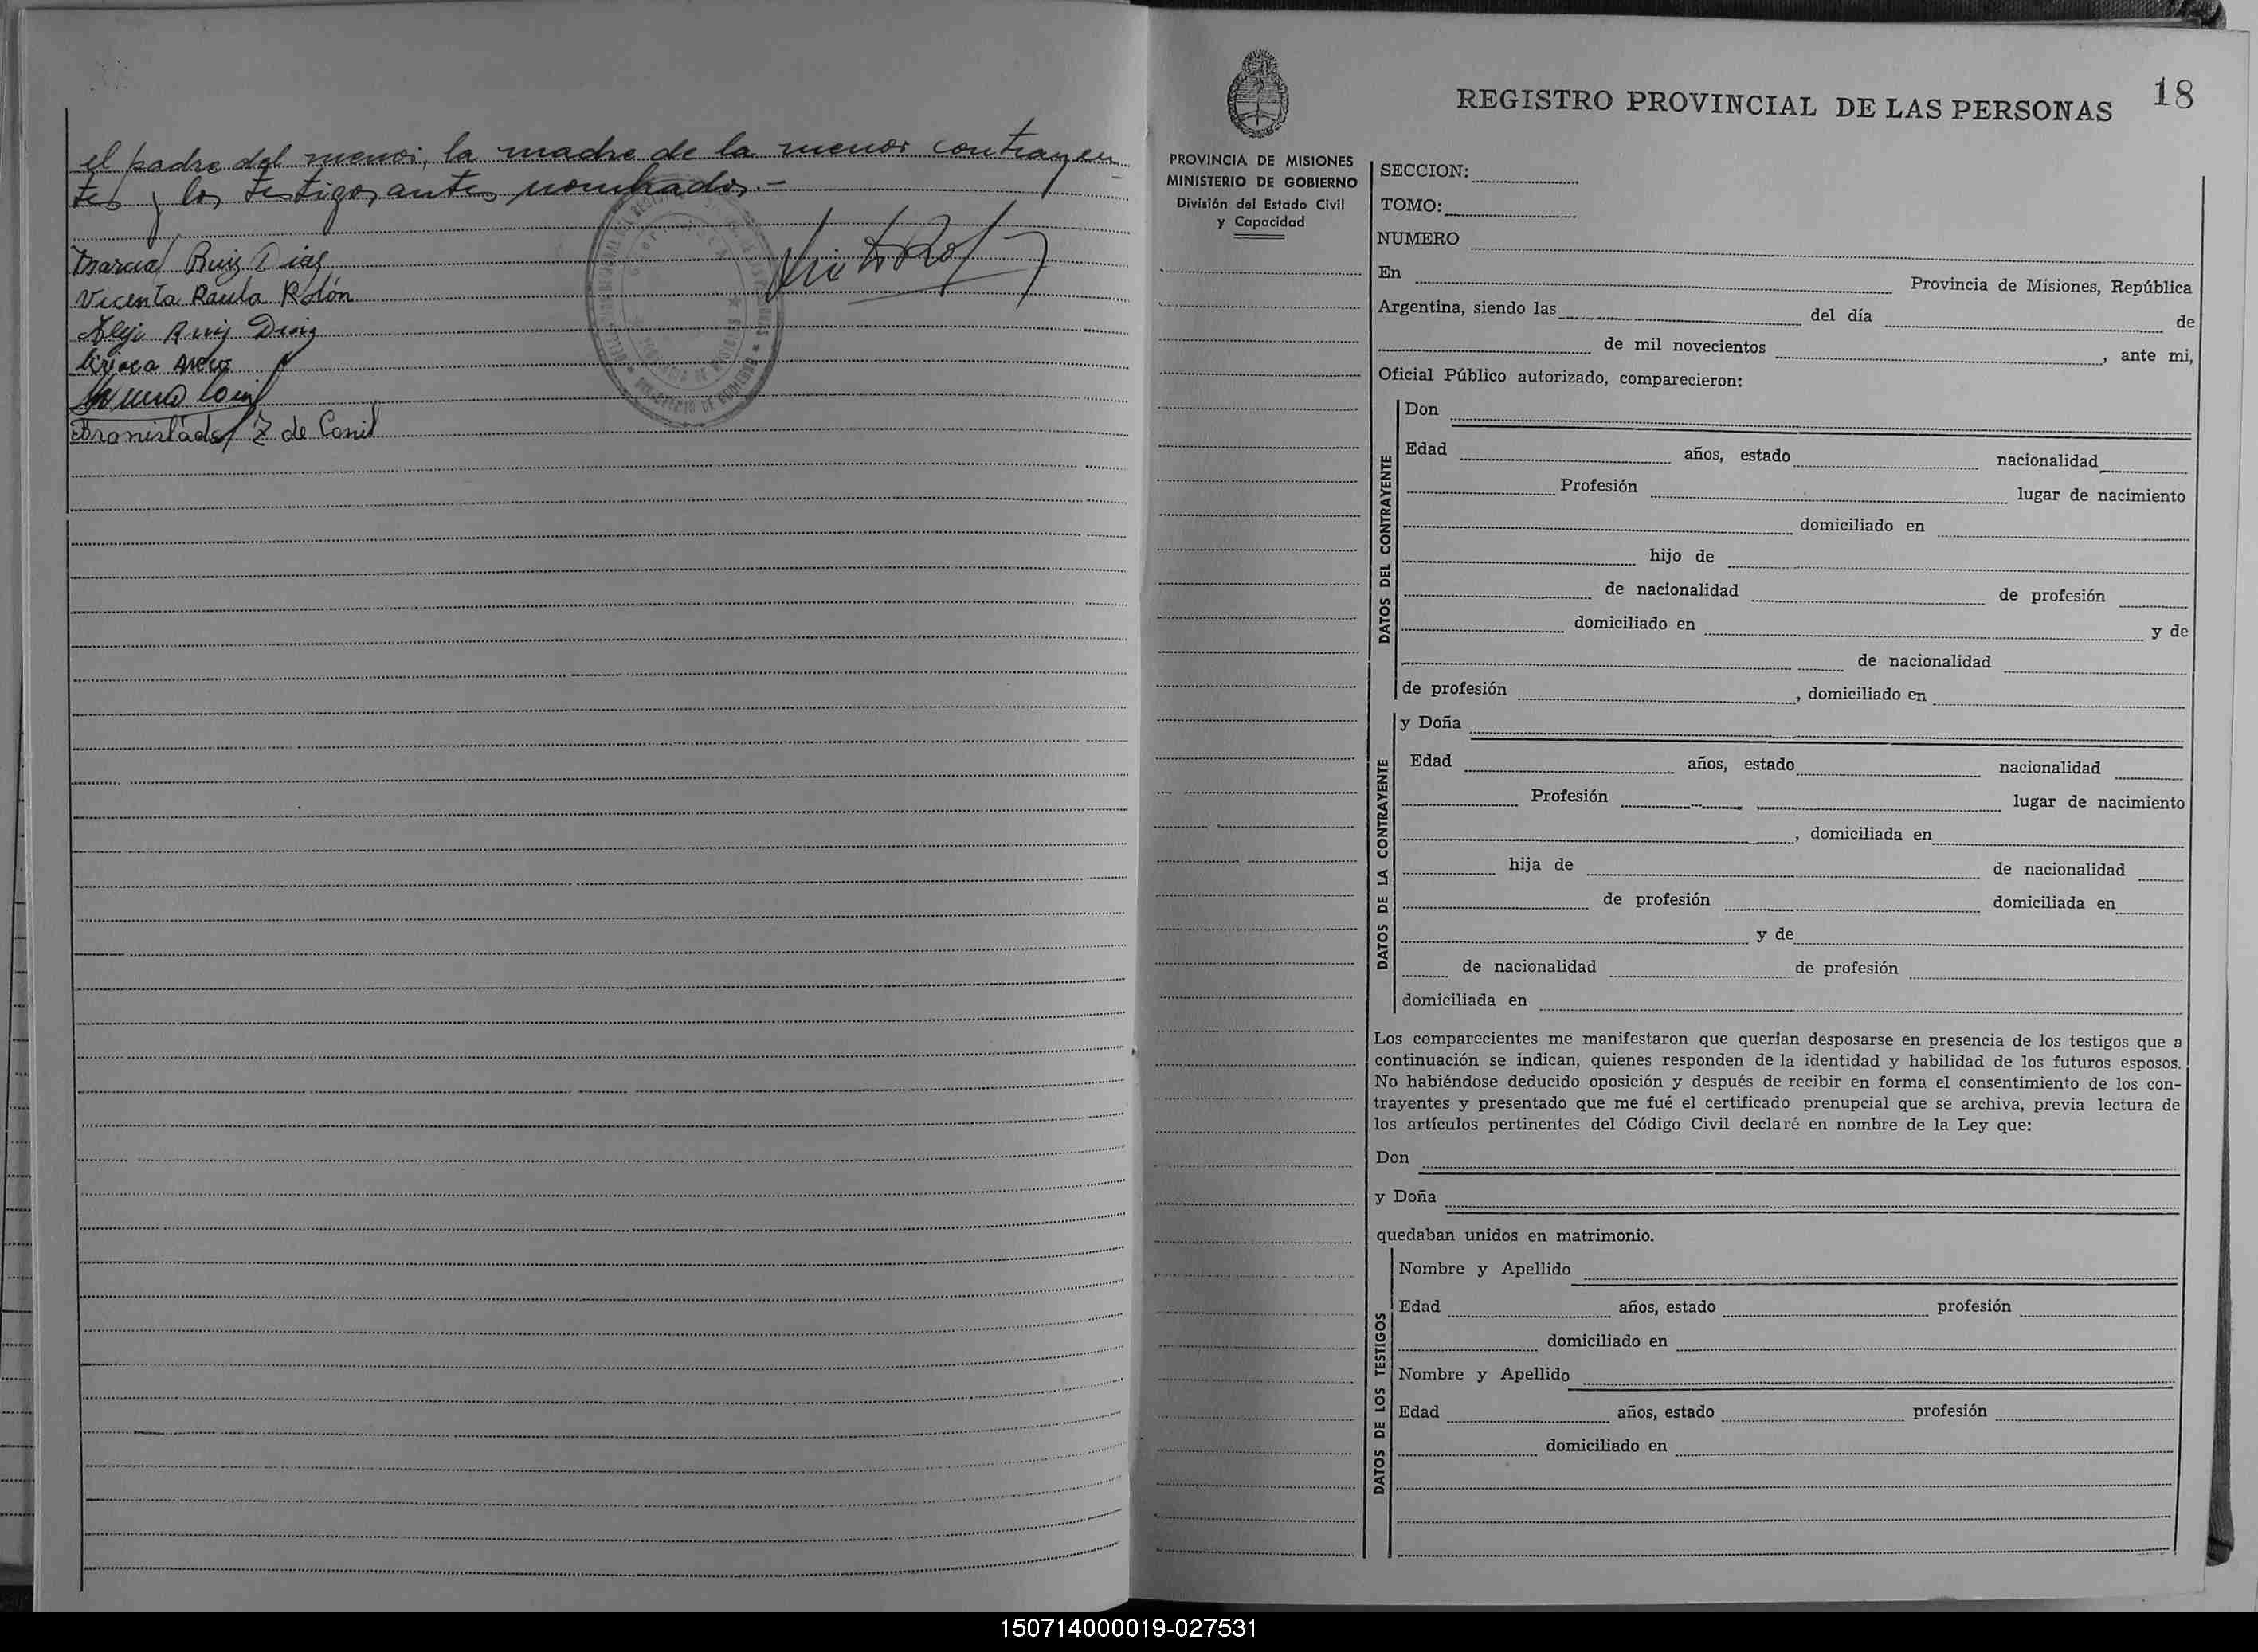 el padre del menor, la madre de la menor contrayen
tes y los testigos antes nombrados.-
Marcial Ruiz Diaz
Vicenta Paula Rolón
Alejo Ruiz Diaz
Bronislada Z de Conil
REGISTRO PROVINCIAL DE LAS PERSONAS
18
PROVINCIA DE MISIONES
MINISTERIO DE GOBIERNO
División del Estado Civil
y Capacidad
SECCION:
TOMO:
NUMERO
En Provincia de Misiones, República
Argentina, siendo las del día de
de mil novecientos , ante mi,
Oficial Público autorizado, comparecieron:
DATOS DEL CONTRAYENTE
Don
Edad años, estado nacionalidad
Profesión lugar de nacimiento
domiciliado en
hijo de
de nacionalidad de profesión
domiciliado en y de
de nacionalidad
de profesión , domiciliado en
DATOS DE LA CONTRAYENTE
y Doña
Edad años, estado nacionalidad
Profesión lugar de nacimiento
, domiciliada en
hija de de nacionalidad
de profesión domiciliada en
y de
de nacionalidad de profesión
domiciliada en
Los comparecientes me manifestaron que querían desposarse en presencia de los testigos que a
continuación se indican, quienes responden de la identidad y habilidad de los futuros esposos.
No habiéndose deducido oposición y después de recibir en forma el consentimiento de los con-
trayentes y presentado que me fué el certificado prenupcial que se archiva, previa lectura de
los artículos pertinentes del Código Civil declaré en nombre de la Ley que:
Don
y Doña
quedaban unidos en matrimonio.
DATOS DE LOS TESTIGOS
Nombre y Apellido
Edad años, estado profesión
domiciliado en
Nombre y Apellido
Edad años, estado profesión
domiciliado en
150714000019-027531